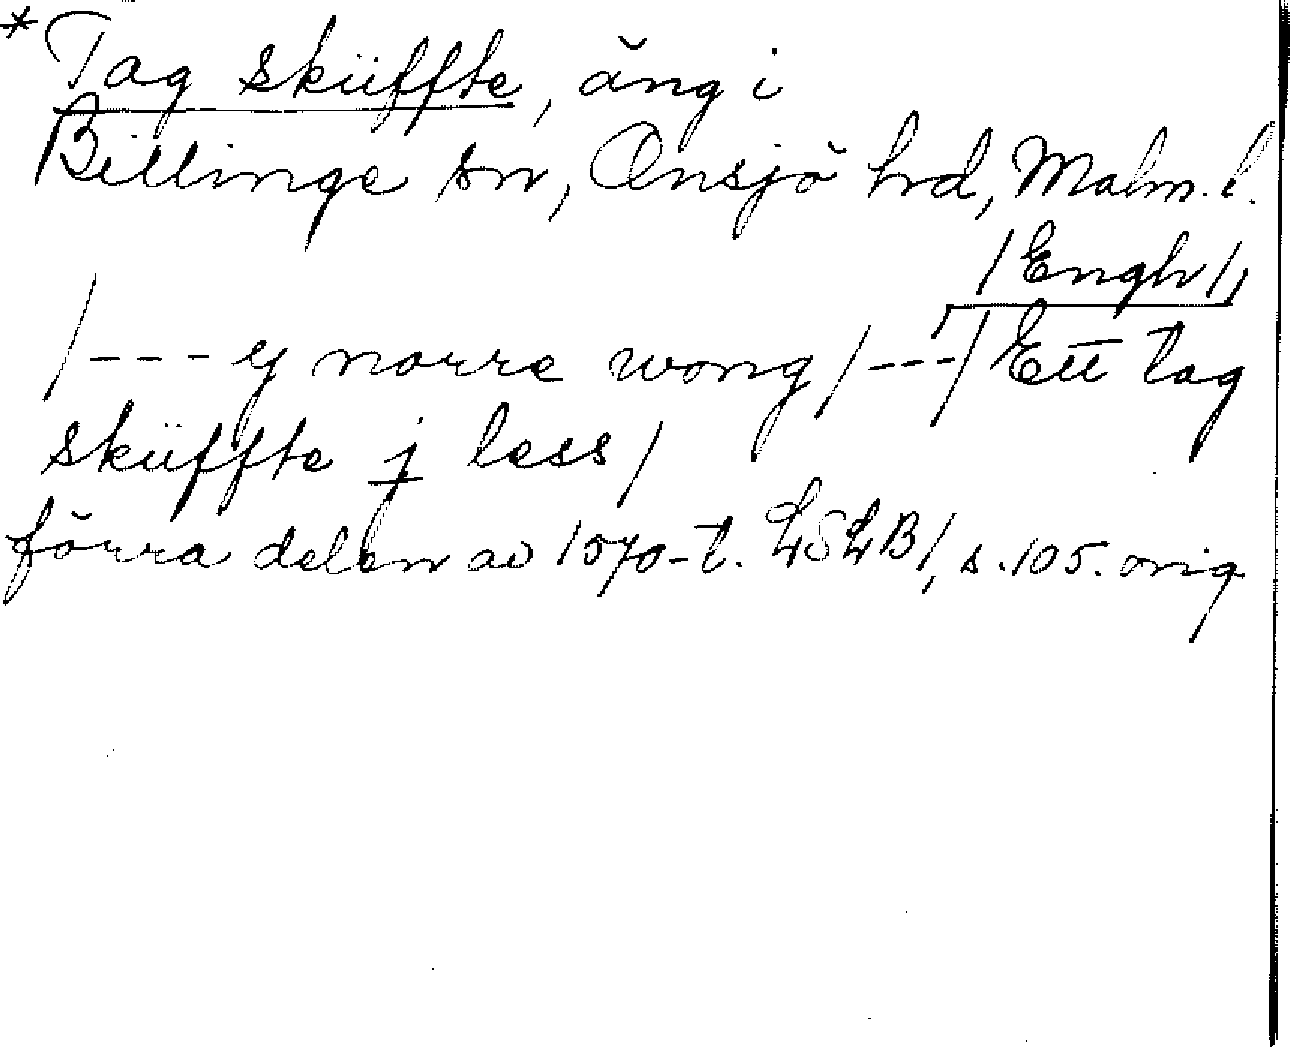 *Tag sküffte, äng i
Billinge sn, Onsjö hrd, Malm. l.
/Engh/,
/--- y norre wong/---/ Ett tag
sküffte j less/
förra delen av 1570-t. LSLB/, s. 105. orig